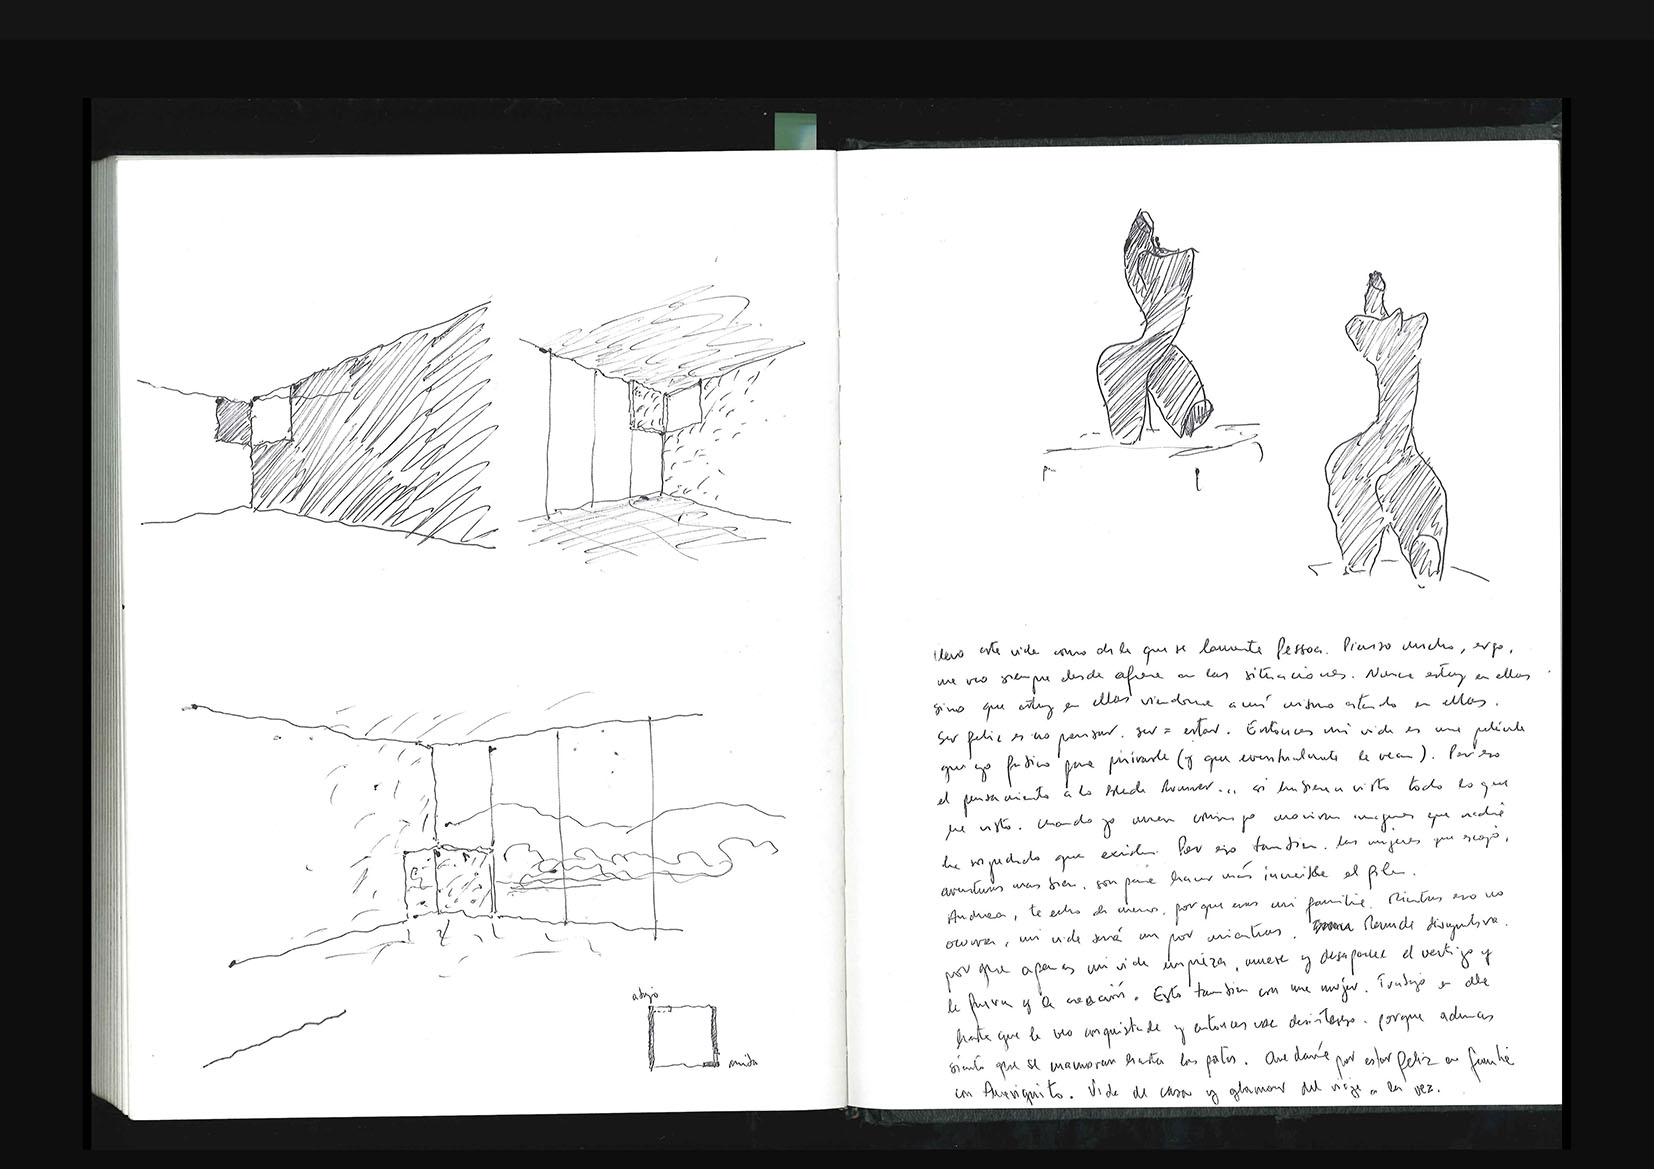 abajo
arriba
esta vida como de la que se lamenta Pessoa. Pienso mucho, ergo,
me veo siempre desde afuera en las situaciones. Nunca estoy en ellas
sino que estoy en ellas viendome a mí mismo estando en ellas.
ser feliz es no pensar. ser = estar. Entonces mi vida es una película
que yo para (y que eventualmente la vean). Por eso
el pensamiento a lo Blade Runner... si hubieran visto todo lo que
he visto. Cuando yo muera conmigo morirán imagenes que nadie
ha que existen. Por eso tambien. las mujeres que escojo,
aventuras mas bien. son para hacer más increíble el film.
Andrea, te echo de menos. porque eras mi familia. Mientras eso no
ocurra, mi vida será un por mientras.
por que apenas mi vida empieza, muere y desaparece el vertigo y
la fuerza y la creación. Esto tambien con una mujer. Trabajo en ella
hasta que la veo conquistada y entonces desinterés. porque ademas
siento que se enamoran hasta las patas. Que daría por estar feliz en familia
con. Vida de casa y glamour del viaje a la vez.